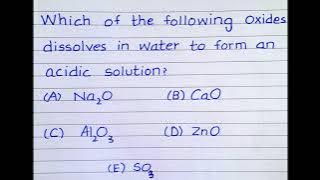 Which of the following Oxides
dissolves in water to form an
acidic solution?
(A) Na₂O (B) CaO
(C) Al₂O₃ (D) ZnO
(E) SO₃